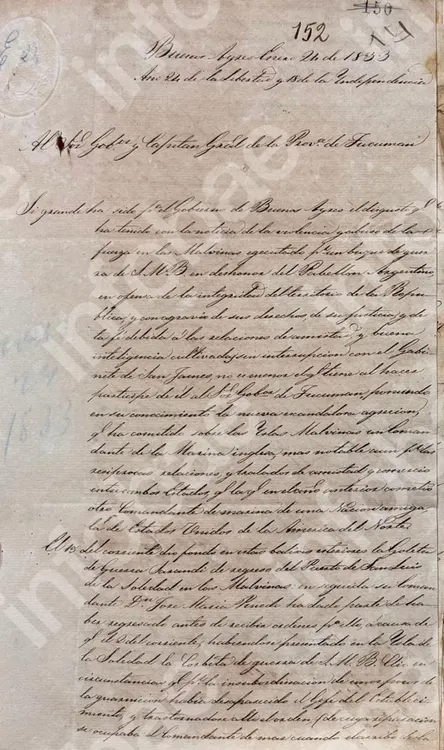 150
152
Buenos Ayres Enero 24 de 1833
Año 24 de la Libertad y 18 de la Independencia
Al Sor Gobor y Capitan Gral de la Prova de Tucuman
Si grande ha sido pa el Gobierno de Buenos Ayres el disgusto q.e
ha tenido con la noticia de la violencia y abuso de la
fuerza en las Malvinas egecutado pr un buque de guer
ra de S.M.B. en deshonor del Pabellon Argentino
en ofensa de la integridad del territorio de la Repu
blica, y con agravio de sus derechos, de su justicia, y de
la fé debida á las relaciones de amistad, y buena
inteligencia cultivada sin interrupcion con el Gabi
nete de San James, no es menor el q.e tiene al hacer
participe de el al Sor Gobor de Tucuman, poniendo
en su conocimiento la nueva escandalosa agresion,
q.e ha cometido sobre las Yslas Malvinas un Coman
dante de la Marina inglesa, mas notable aun pr las
reciprocas relaciones, y tratados de amistad y comercio
entre ambos Estados, q.e la q.e en el año anterior cometió
otro Comandante de marina de una Nacion amiga
la de Estados Unidos de la America del Norte
El 15 del corriente dio fondo en estas balizas esteriores la Goleta
de Guerra Sarandi de regreso del Puerto de San Luis
de la Soledad en las Malvinas. en seguida su Coman
dante Dn José Maria Pinedo ha dado parte de ha
ber regresado antes de recibir ordenes pa ello, a causa de
q.e el 2 del corriente, habiendose presentado en la Ysla de
la Soledad la Corbeta de guerra de S.M.B. Clio en
circunstancias q.e pr la insubordinacion de unos pocos de
la guarnicion habia desaparecido el Gefe del Estableci
miento, y trastornadose alli el orden
se ocupaba el Comandante de mar cuando
infoae
1833